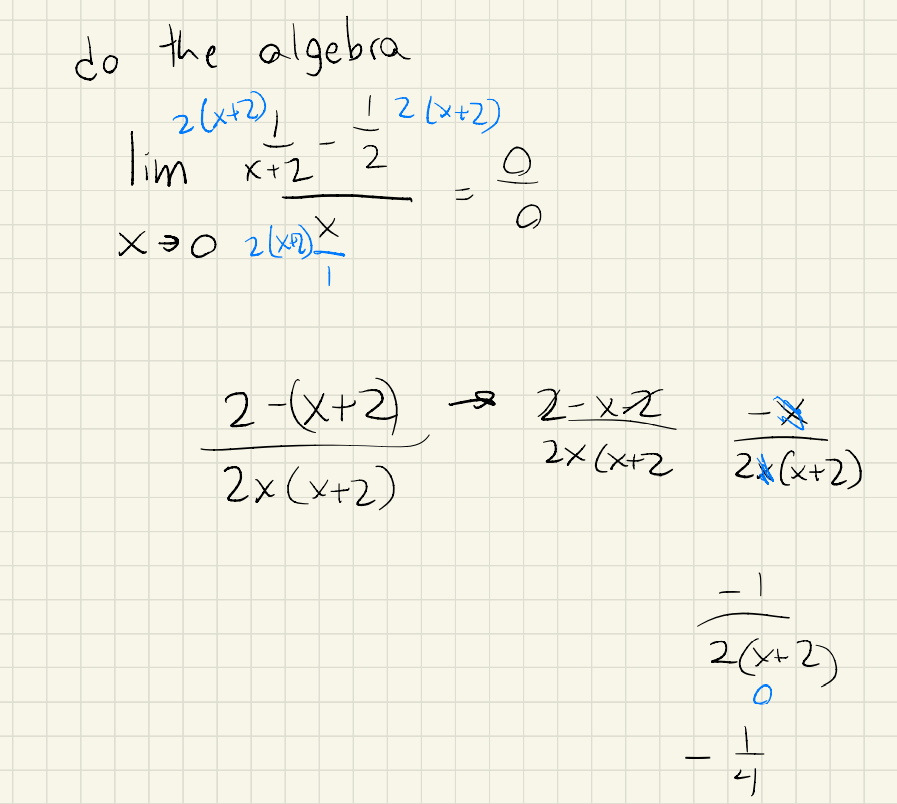 do the algebra
2(x+2) 1/(x+2) - 1/2 2(x+2)
lim ―――― = 0/0
x→0 2(x+2) x/1
(2-(x+2))/(2x(x+2)) → (2-x-2)/(2x(x+2) -x/(2x(x+2))
-1/(2(x+2))
0
- 1/4